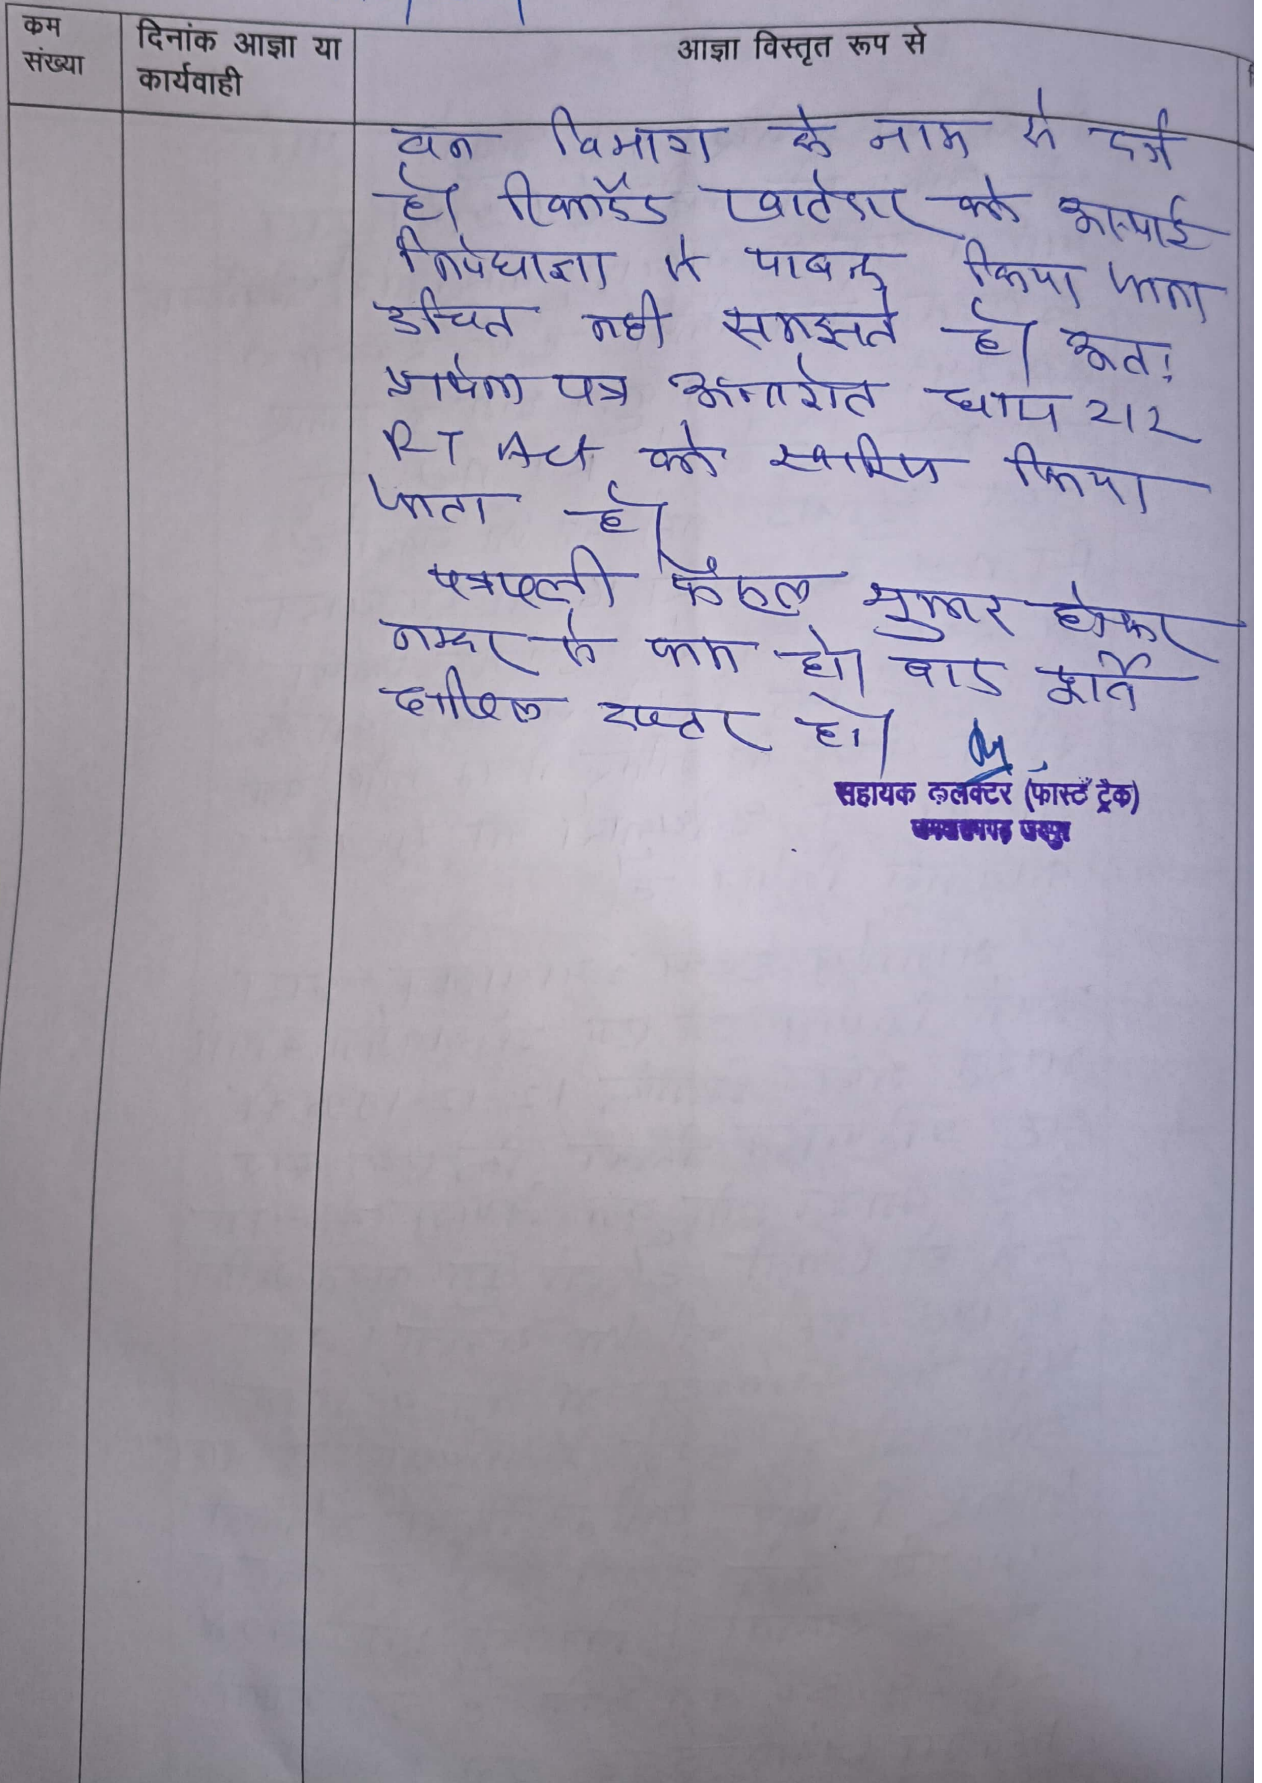 कम
संख्या
दिनांक आज्ञा या
कार्यवाही
आज्ञा विस्तृत रूप से
वन विभाग के नाम से दर्ज
है। रिकॉर्डेड खातेदार को अस्थाई
निषेधाज्ञा से पाबन्द किया जाना
उचित नही समझते है। अतः
प्रार्थना पत्र अन्तर्गत धारा 212
RT Act को खारिज किया
जाता है।
पत्रावली फैसल शुमार होकर
नम्बर से कम हो। बाद पूर्ति
दाखिल दफ्तर हो।
सहायक कलक्टर (फास्ट ट्रैक)